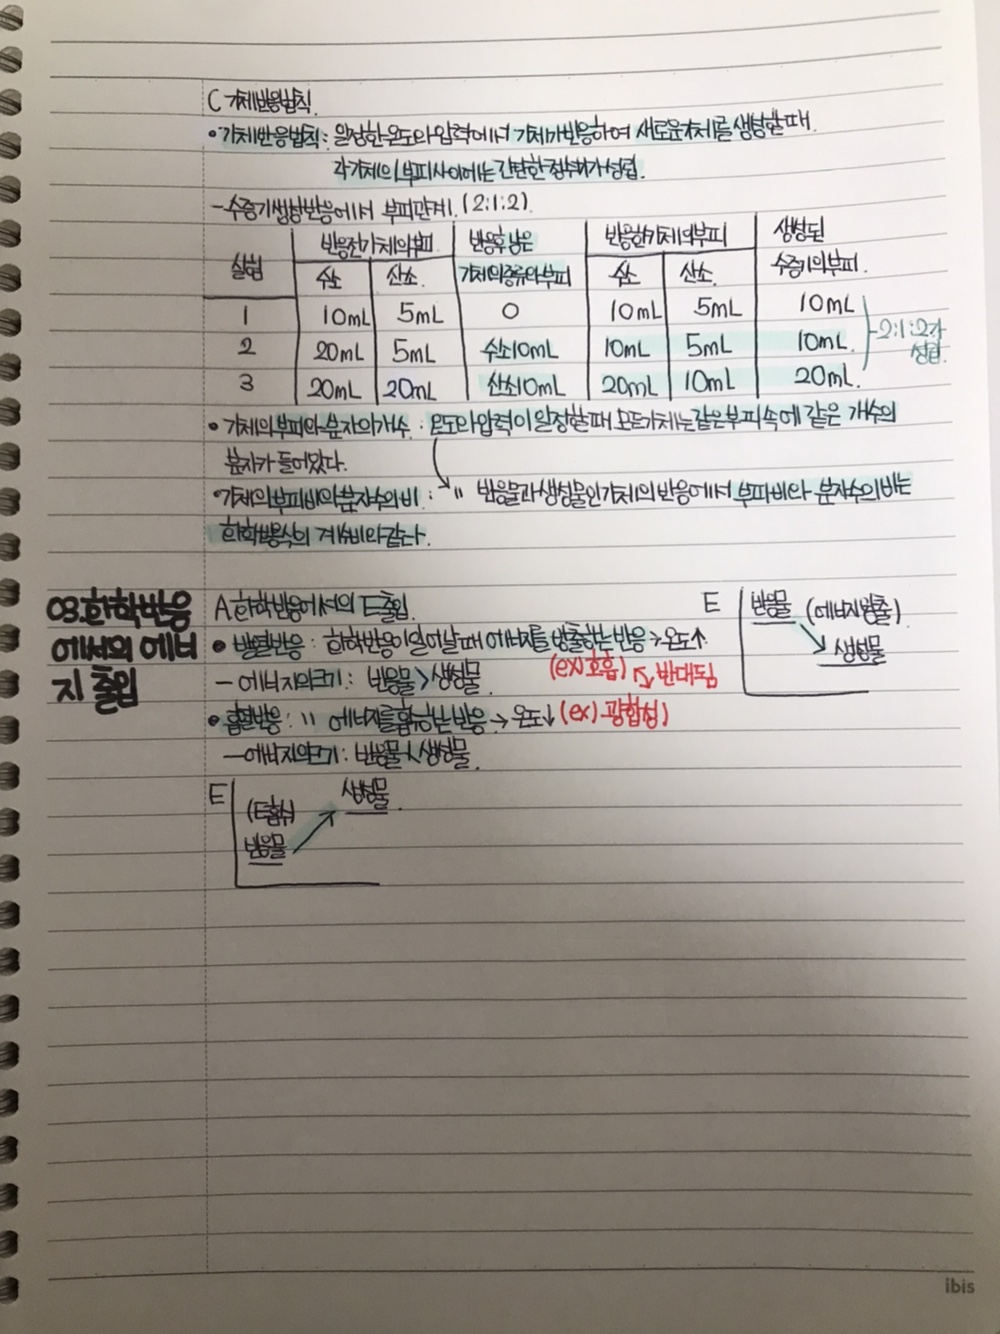 C 기체반응법칙.
• 기체반응법칙: 일정한 온도와 압력에서 기체가 반응하여 새로운 기체를 생성할 때,
각 기체의 부피 사이에는 간단한 정수비가 성립.
- 수증기 생성 반응에서 부피관계. (2:1:2)
실험 반응전 기체의 부피 반응후 남은 반응한 기체의 부피 생성된
수소 산소. 기체의 종류와 부피 수소 산소. 수증기의 부피.
1 10mL 5mL 0 10mL 5mL 10mL
2 20mL 5mL 수소10mL 10mL 5mL 10mL. 2:1:2가
성립.
3 20mL 20mL 산소10mL 20mL 10mL 20mL.
• 기체의 부피와 분자의 개수 : 온도와 압력이 일정할 때 모든 기체는 같은 부피 속에 같은 개수의
분자가 들어있다.
• 기체의 부피비와 분자수의 비 : 〃 반응물과 생성물인 기체의 반응에서 부피비와 분자수의 비는
화학반응식의 계수비와 같다.
03. 화학반응
에서의 에너
지 출입
A. 화학반응에서의 E출입.
• 발열반응 : 화학반응이 일어날 때 에너지를 방출하는 반응 → 온도↑
- 에너지의 크기 : 반응물 > 생성물 (ex)호흡) 반대됨
• 흡열반응 : 〃 에너지를 흡수하는 반응 → 온도↓ (ex) 광합성)
- 에너지의 크기 : 반응물 < 생성물.
E 반응물 (에너지방출)
생성물
E 생성물.
(E흡수)
반응물
ibis